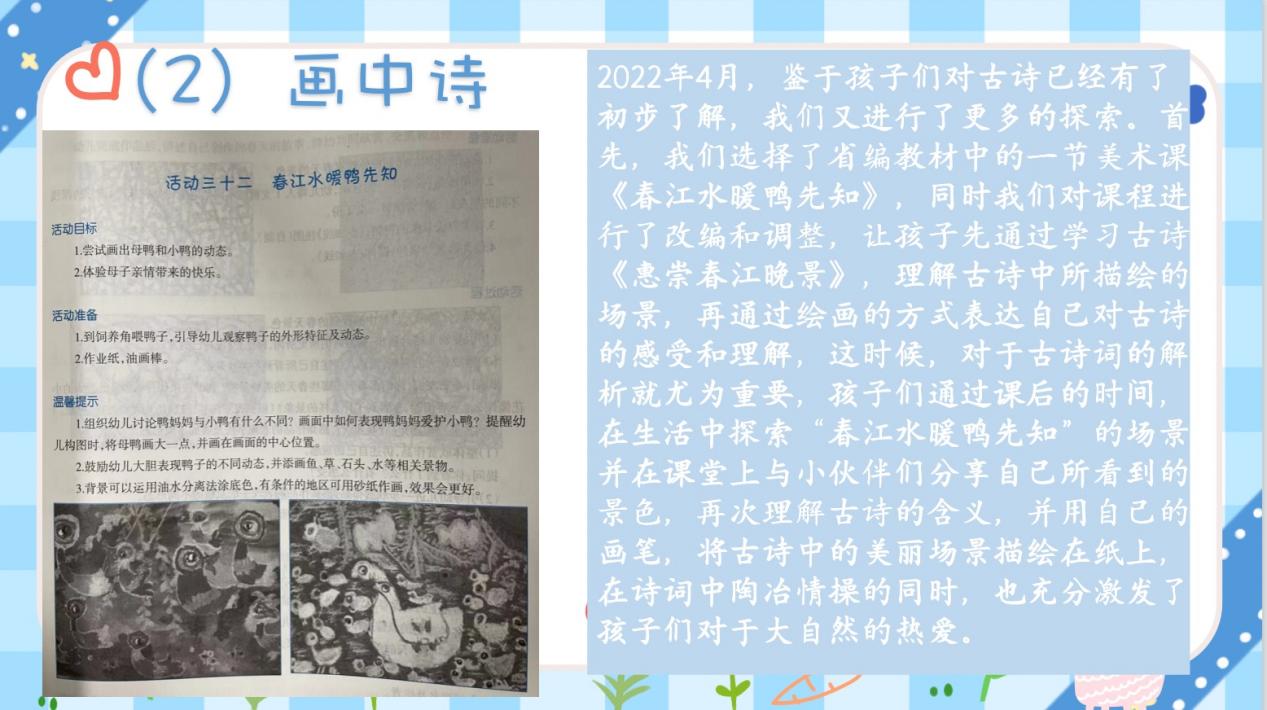 (2) 画中诗
活动三十二 春江水暖鸭先知
活动目标
1.尝试画出母鸭和小鸭的动态。
2.体验母子亲情带来的快乐。
活动准备
1.到饲养角喂鸭子,引导幼儿观察鸭子的外形特征及动态。
2.作业纸,油画棒。
温馨提示
1.组织幼儿讨论鸭妈妈与小鸭有什么不同?画面中如何表现鸭妈妈爱护小鸭?提醒幼
儿构图时,将母鸭画大一点,并画在画面的中心位置。
2.鼓励幼儿大胆表现鸭子的不同动态,并添画鱼、草、石头、水等相关景物。
3.背景可以运用油水分离法涂底色,有条件的地区可用砂纸作画,效果会更好。
2022年4月，鉴于孩子们对古诗已经有了
初步了解，我们又进行了更多的探索。首
先，我们选择了省编教材中的一节美术课
《春江水暖鸭先知》，同时我们对课程进
行了改编和调整，让孩子先通过学习古诗
《惠崇春江晚景》，理解古诗中所描绘的
场景，再通过绘画的方式表达自己对古诗
的感受和理解，这时候，对于古诗词的解
析就尤为重要，孩子们通过课后的时间，
在生活中探索“春江水暖鸭先知”的场景
并在课堂上与小伙伴们分享自己所看到的
景色，再次理解古诗的含义，并用自己的
画笔，将古诗中的美丽场景描绘在纸上，
在诗词中陶冶情操的同时，也充分激发了
孩子们对于大自然的热爱。